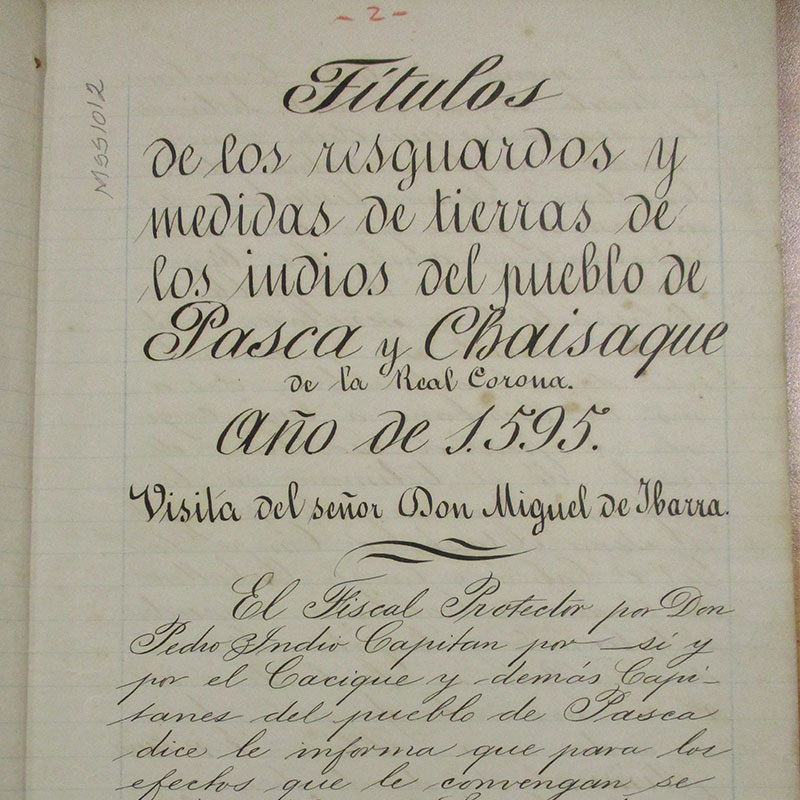 - 2 -
MSS1012
Títulos
de los resguardos y
medidas de tierras de
los indios del pueblo de
Pasca y Chaisaque
de la Real Corona.
Año de 1.595.
Visita del señor Don Miguel de Ibarra.
El Fiscal Protector por Don
Pedro Indio Capitan por sí y
por el Cacique y demás Capi-
tanes del pueblo de Pasca
dice le informa que para los
efectos que le convengan se